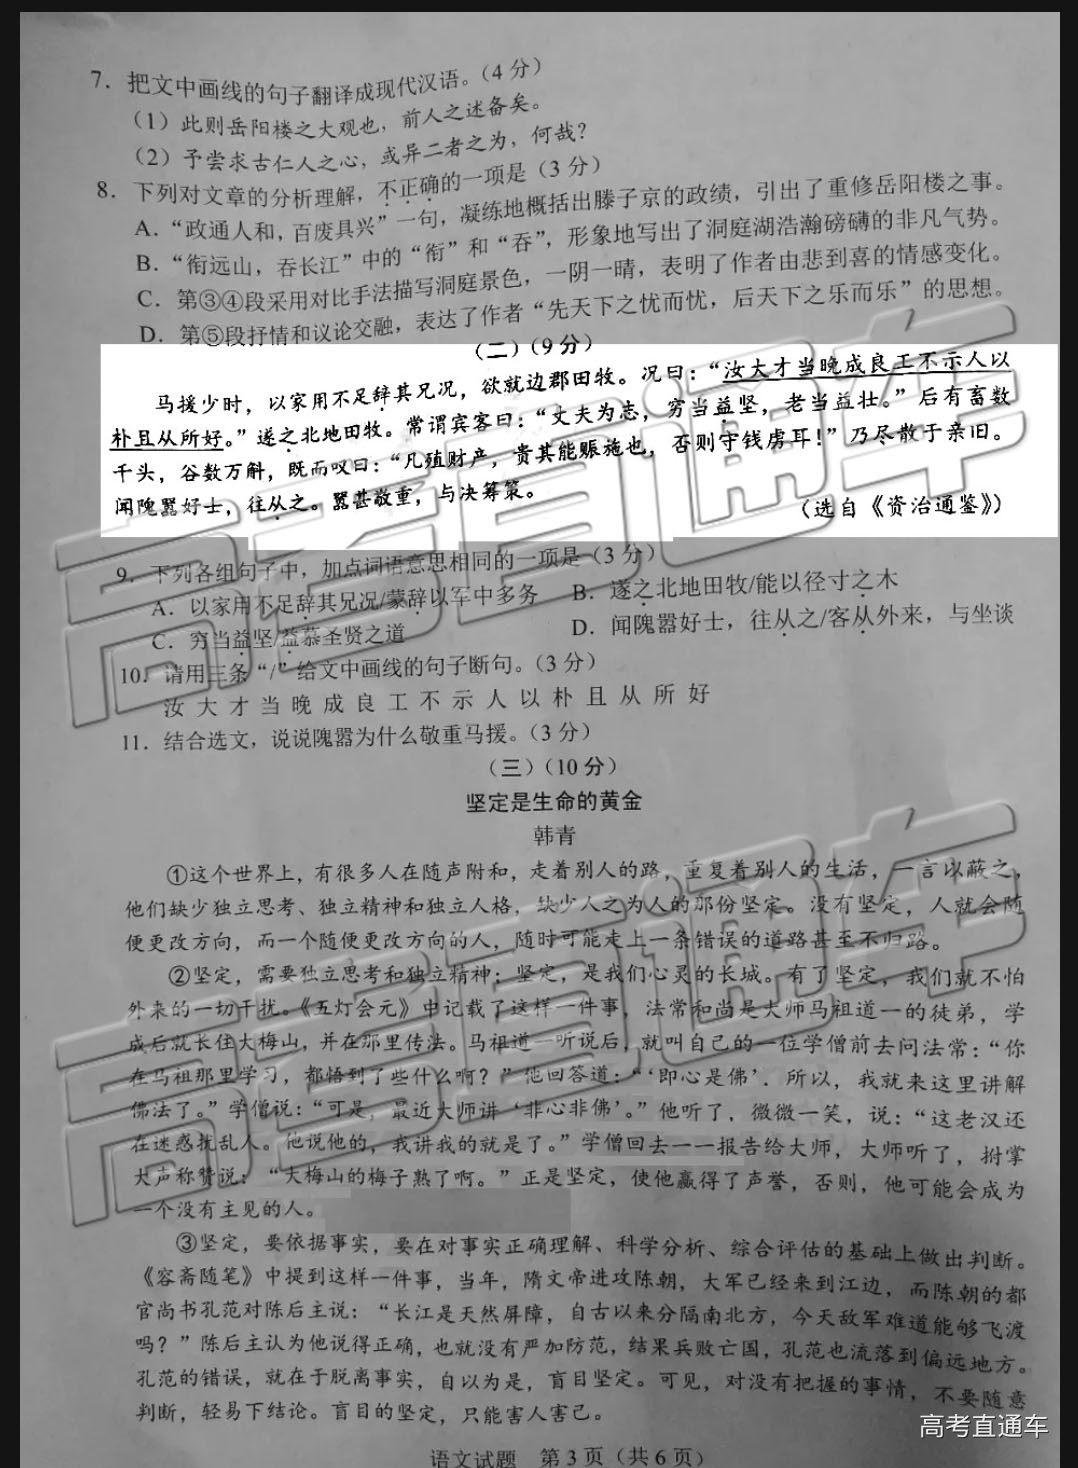 7．把文中画线的句子翻译成现代汉语。（4 分）
（1）此则岳阳楼之大观也，前人之述备矣。
（2）予尝求古仁人之心，或异二者之为，何哉？
8．下列对文章的分析理解，不正确的一项是（3 分）
A．“政通人和，百废具兴”一句，凝练地概括出滕子京的政绩，引出了重修岳阳楼之事。
B．“衔远山，吞长江”中的“衔”和“吞”，形象地写出了洞庭湖浩瀚磅礴的非凡气势。
C．第③④段采用对比手法描写洞庭景色，一阴一晴，表明了作者由悲到喜的情感变化。
D．第⑤段抒情和议论交融，表达了作者“先天下之忧而忧，后天下之乐而乐”的思想。
（二）（9 分）
马援少时，以家用不足辞其兄况，欲就边郡田牧。况曰：“汝大才当晚成良工不示人以
朴且从所好。”遂之北地田牧。常谓宾客曰：“丈夫为志，穷当益坚，老当益壮。”后有畜数
千头，谷数万斛，既而叹曰：“凡殖财产，贵其能赈施也，否则守钱虏耳！”乃尽散于亲旧。
闻隗嚣好士，往从之。嚣甚敬重，与决筹策。
（选自《资治通鉴》）
9．下列各组句子中，加点词语意思相同的一项是（3 分）
A．以家用不足辞其兄况/蒙辞以军中多务 B．遂之北地田牧/能以径寸之木
C．穷当益坚/益慕圣贤之道 D．闻隗嚣好士，往从之/客从外来，与坐谈
10．请用三条“/”给文中画线的句子断句。（3 分）
汝 大 才 当 晚 成 良 工 不 示 人 以 朴 且 从 所 好
11．结合选文，说说隗嚣为什么敬重马援。（3 分）
（三）（10 分）
坚定是生命的黄金
韩青
①这个世界上，有很多人在随声附和，走着别人的路，重复着别人的生活，一言以蔽之，
他们缺少独立思考、独立精神和独立人格，缺少人之为人的那份坚定。没有坚定，人就会随
便更改方向，而一个随便更改方向的人，随时可能走上一条错误的道路甚至不归路。
②坚定，需要独立思考和独立精神；坚定，是我们心灵的长城。有了坚定，我们就不怕
外来的一切干扰。《五灯会元》中记载了这样一件事，法常和尚是大师马祖道一的徒弟，学
成后就长住大梅山，并在那里传法。马祖道一听说后，就叫自己的一位学僧前去问法常：“你
在马祖那里学习，都悟到了些什么啊？”他回答道：“‘即心是佛’．所以，我就来这里讲解
佛法了。”学僧说：“可是，最近大师讲‘非心非佛’。”他听了，微微一笑，说：“这老汉还
在迷惑扰乱人。他说他的，我讲我的就是了。”学僧回去一一报告给大师，大师听了，拊掌
大声称赞说：“大梅山的梅子熟了啊。”正是坚定，使他赢得了声誉，否则，他可能会成为
一个没有主见的人。
③坚定，要依据事实，要在对事实正确理解、科学分析、综合评估的基础上做出判断。
《容斋随笔》中提到这样一件事，当年，隋文帝进攻陈朝，大军已经来到江边，而陈朝的都
官尚书孔范对陈后主说：“长江是天然屏障，自古以来分隔南北方，今天敌军难道能够飞渡
吗？”陈后主认为他说得正确，也就没有严加防范，结果兵败亡国，孔范也流落到偏远地方。
孔范的错误，就在于脱离事实，自以为是，盲目坚定。可见，对没有把握的事情，不要随意
判断，轻易下结论。盲目的坚定，只能害人害己。
语文试题 第 3 页（共 6 页）
高考直通车
高考直通车
高考直通车